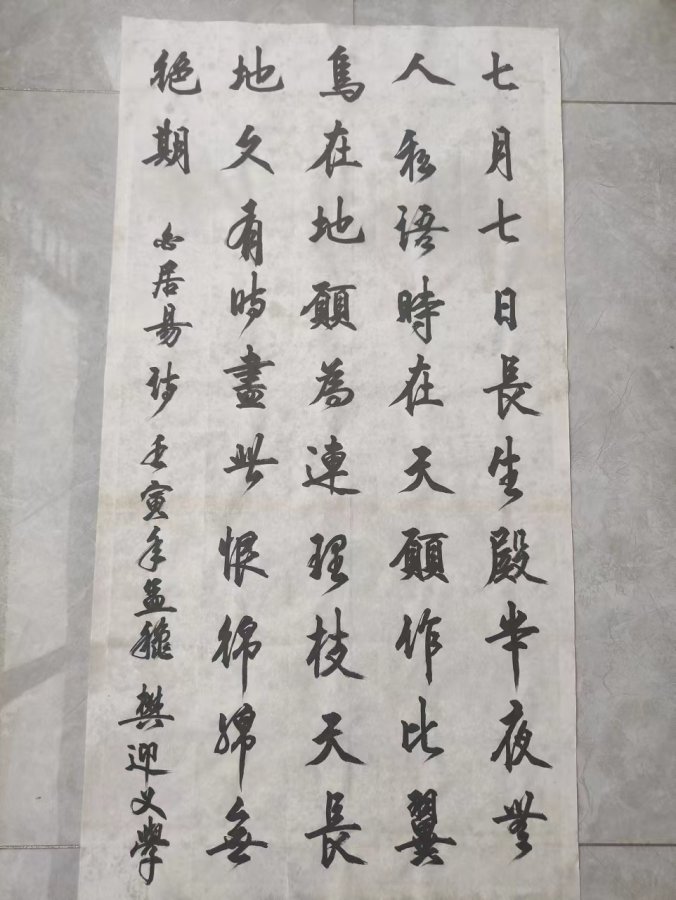 七月七日長生殿半夜無
人私語時在天願作比翼
鳥在地願為連理枝天長
地久有時盡此恨綿綿無
絕期 白居易詩 壬寅年孟 樊迎义學